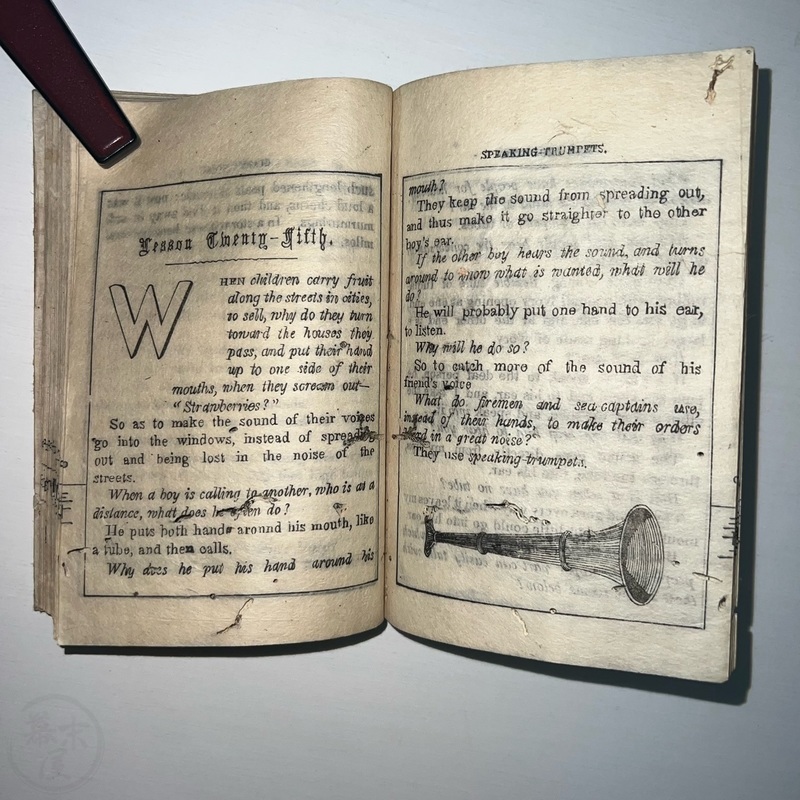 Lesson Twenty-Fifth.
WHEN children carry fruit
along the streets in cities,
to sell, why do they turn
toward the houses they
pass, and put their hand
up to one side of their
mouths, when they scream out—
"Strawberries?"
So as to make the sound of their voices
go into the windows, instead of spreading
out and being lost in the noise of the
streets.
When a boy is calling to another, who is at a
distance, what does he often do?
He puts both hands around his mouth, like
a tube, and then calls.
Why does he put his hand around his
SPEAKING-TRUMPETS.
mouth?
They keep the sound from spreading out,
and thus make it go straighter to the other
boy's ear.
If the other boy hears the sound, and turns
around to know what is wanted, what will he
do?
He will probably put one hand to his ear,
to listen.
Why will he do so?
So to catch more of the sound of his
friend's voice
What do firemen and sea captains use,
instead of their hands, to make their orders
heard in a great noise?
They use speaking-trumpets.